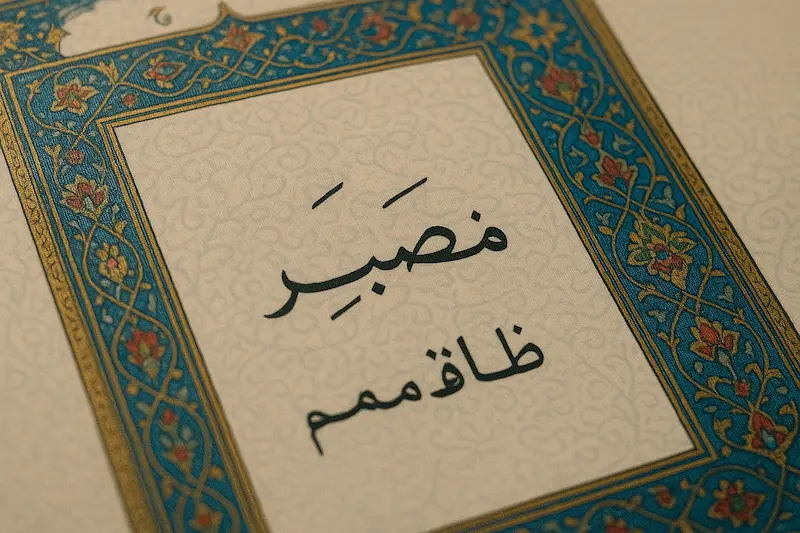 مصَبِرَ
ظاق ممم